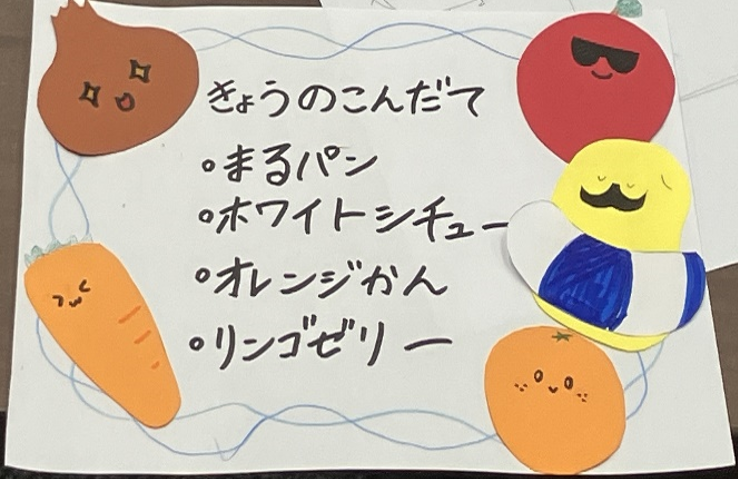 きょうのこんだて
・まるパン
・ホワイトシチュー
・オレンジかん
・リンゴゼリー